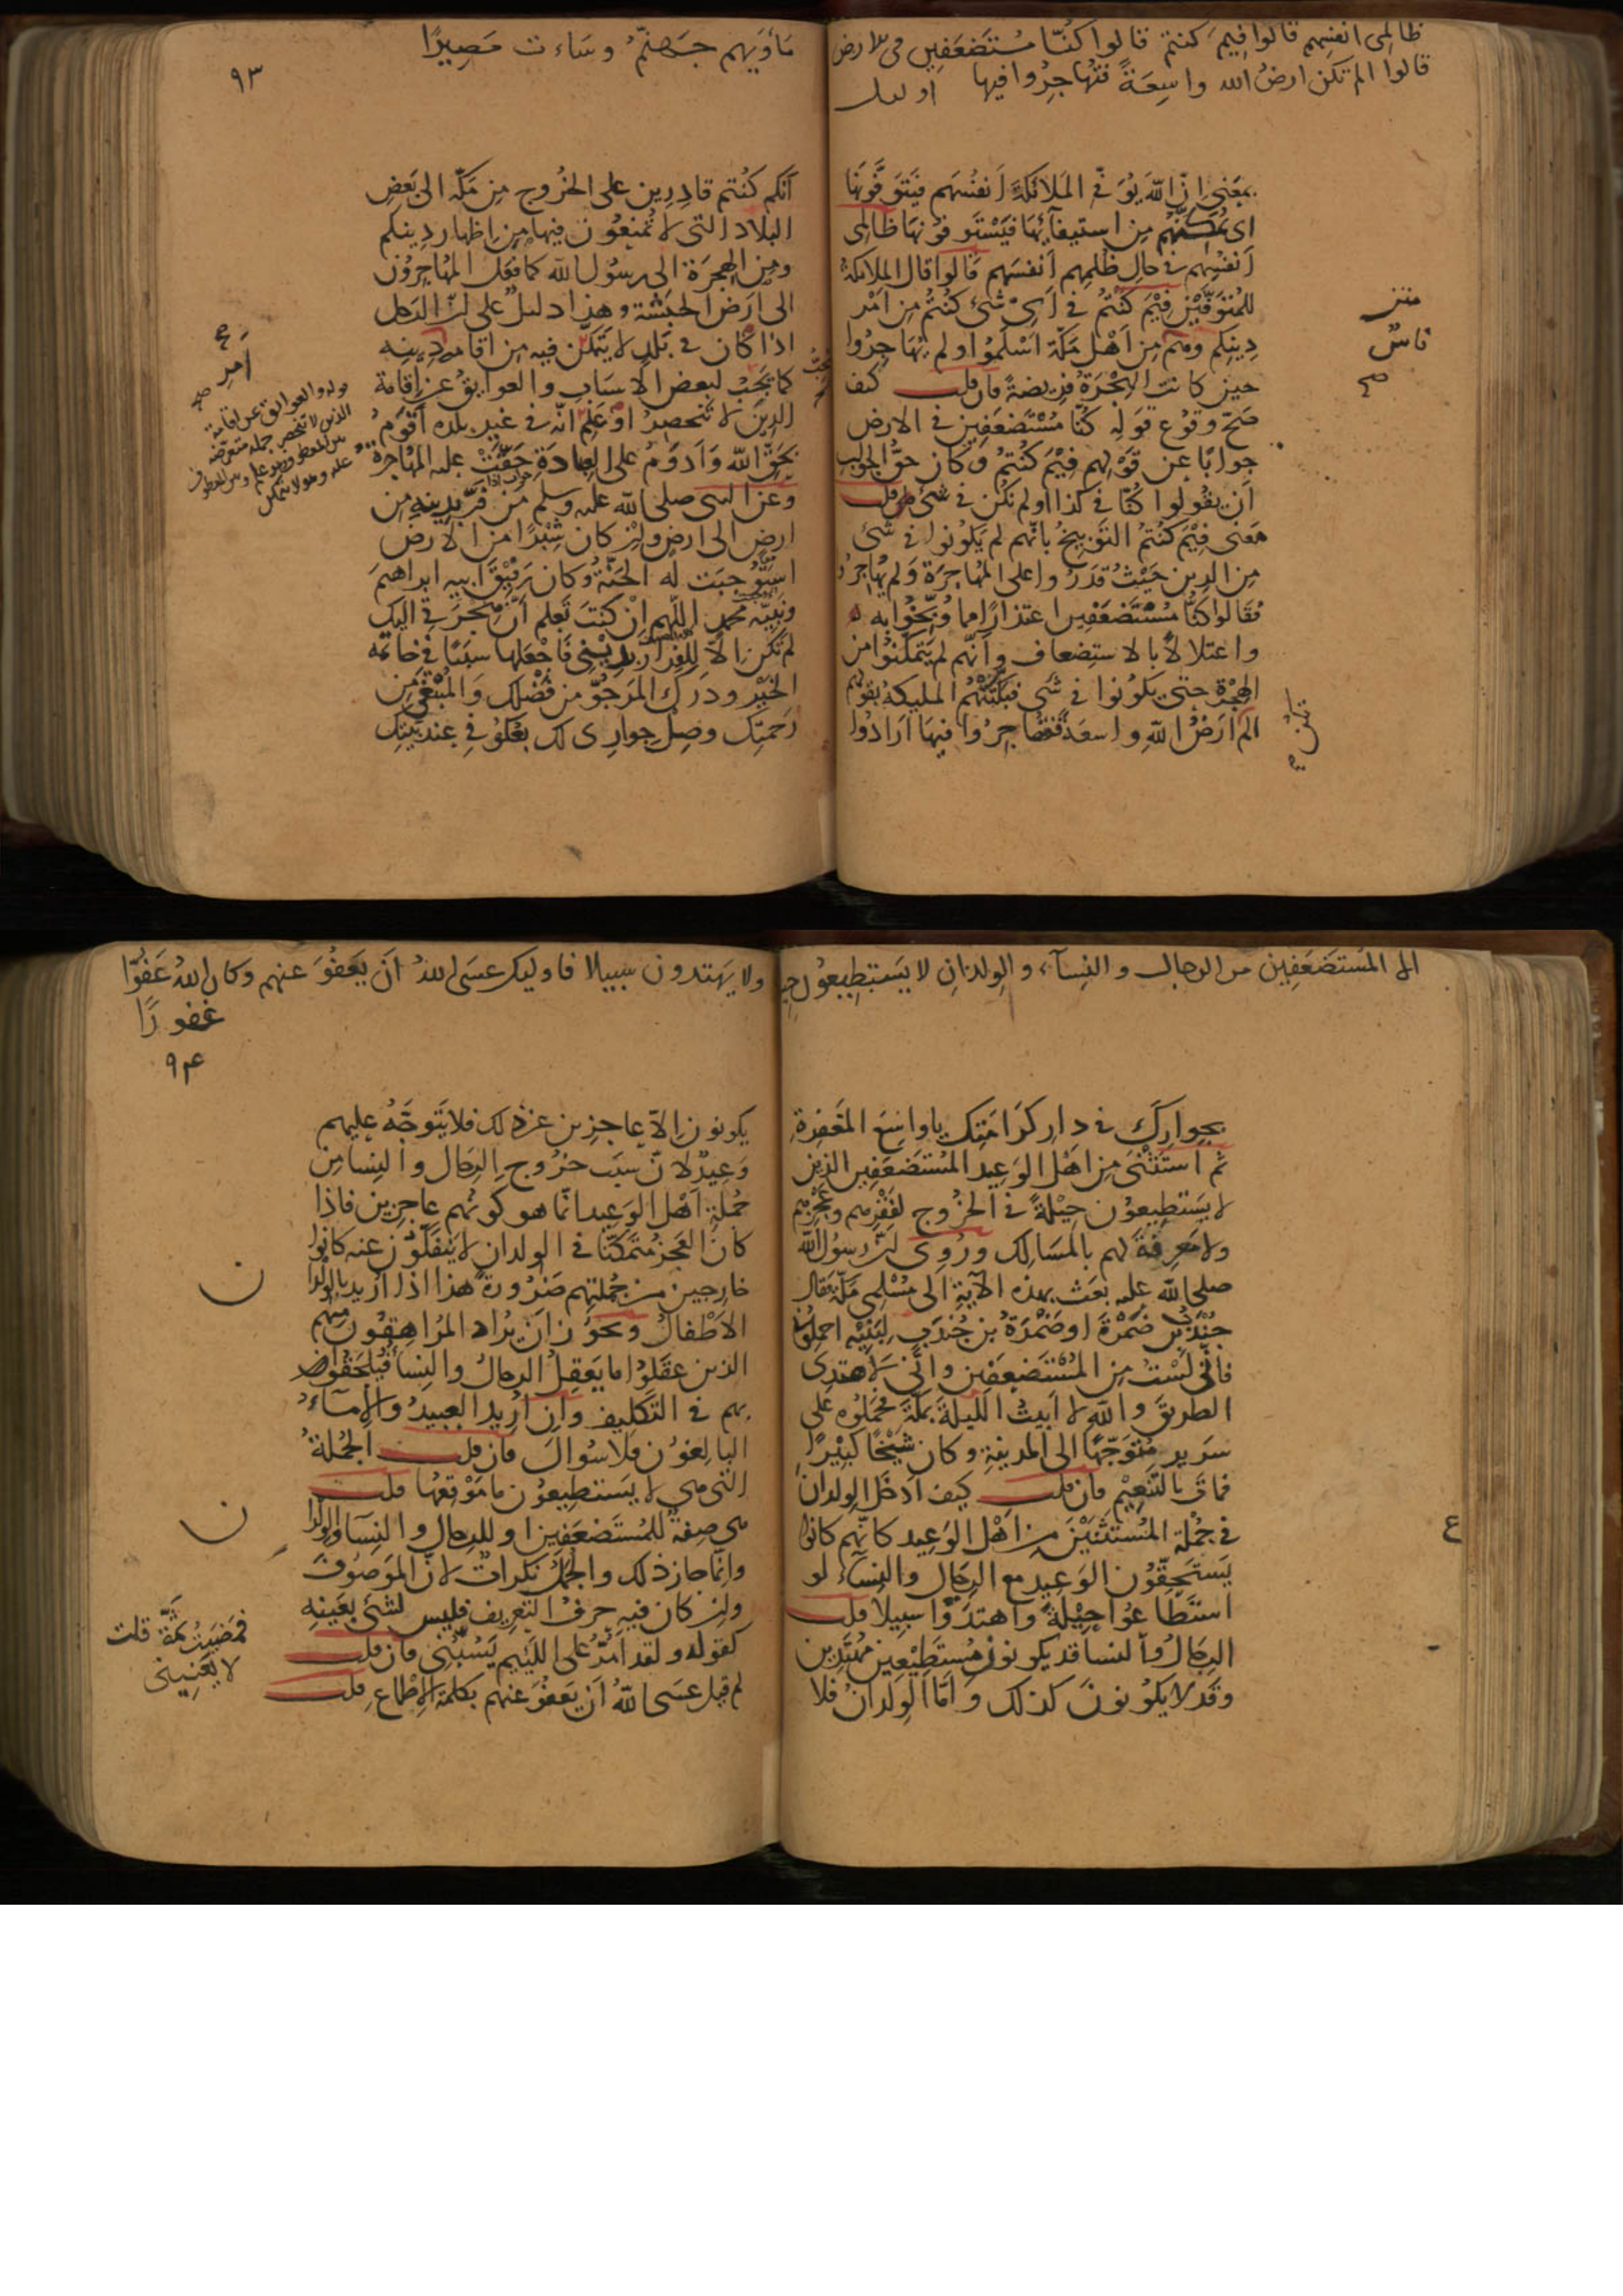 ظالمى انفسهم قالوا فيم كنتم قالوا كنّا مُستَضعَفِين فى الارض
قالوا الم تكن ارضُ الله واسِعَةً فتُهاجِرُوا فيها اولىك
بمعنى انّ اللّٰه يُوَفّى المَلائكةَ أنفُسَهم فيَتَوَفَّونَها
اى يُمَكِّنُهم مِن استيفآئِها فيَسْتَوفُونَها ظالمى
أنفُسِهم فى حالِ ظُلمِهم أنفسَهم قالوا قال الملائكةُ
للمُتَوَفَّيْنَ فِيْمَ كُنتُمْ فى أىّ شئ كُنتُمْ مِن أمْر
دِينِكم وهُم مِن أهْلِ مَكّةَ أسْلَمُوا ولم يُهَاجِرُوا
حين كانت الهِجْرَةُ فرِيضةً فان قلت كيف
صَحّ وقُوع قَولِه كُنّا مُسْتَضْعَفِينَ فى الارض
جوابًا عن قَوْلهم فِيْمَ كُنتُمْ وكان حقُّ الجواب
أن يقُولوا كُنّا فى كذا او لم نكُن فى شئ قلت
مَعنى فِيْمَ كُنْتُمُ التَّوْبِيخُ بانّهم لم يَكُونُوا فى شئ
مِن الدِين حَيْثُ قدَرُوا على المُهاجَرَة ولم يُهاجِرُوا
فقالوا كُنّا مُسْتَضعَفِين اعتذارًا مما وُبِّخُوا به
واعتلالًا بالاستِضعاف وأنّهم لم يَتمكّنُوا من
الهِجْرة حتى يكونوا فى شئ فبَكّتَتْهُم المليكةُ بقولهم
الم ارْضُ اللّٰهِ واسعَةً فتُهاجِرُوا فيها ارَادُوا
تكن
مَأوَيهم جَهنّمُ وسَاءت مَصِيرًا
٩٣
أنّكم كُنتم قادِرِين على الخُرُوج مِن مَكّة الى بَعضِ
البلاد التى لا تُمنَعُون فيها مِن إظهارِ دِينِكم
ومِن الهِجرَة الى رسُول اللّٰه كما فعَل المُهاجِرُون
الى ارض الحَبَشَة وهذا دليلٌ على انّ الرَجل
اذا كان فى بَلَدٍ لا يَتَمكّن فيه مِن اقامة دِينِه
كما يَجِبُ لبعض الأسبَابِ والعوايقُ عن إقامة
الدين لا تَنحصِرُ او عَلِمَ انّه فى غيرِ بلده أقوَمُ
بحَقّ اللّٰه وَأدوَمُ على العبادَة حَقّتْ عليه المُهاجرة
وعن النبى صلى اللّٰه عليه وسلم مَن فَرّ بدِينِه مِن
ارضٍ الى ارضٍ وإن كان شِبْرًا من الارض
استَوجَبَت له الجَنّةُ وكان رَفِيْقَ ابيه ابراهيمَ
ونَبيّه محمد اللّهم إنْ كنتَ تَعلم أنّ هِجْرَتى إليك
لم تكن إلّا للفِرارِ بدِيْنى فاجْعَلها سبَبًا فى خاتمة
الخَيْر ودَرَكِ المَرجُوّ مِن فَضْلك والمُبْتَغَى مِن
رَحمتِك وصِلْ جِوارى لك بعُكُوفى عند بَيتِك
الا المُستَضعَفِين من الرجال والنِسآء والوِلدَانِ لا يَستَطِيعُون حِيلَة
بجِوارِك فى دارِ كَرَامَتِك ياواسِعَ المَغفِرةِ
ثم اسْتَثْنَى مِن أهْل الوَعِيد المُسْتَضعَفِين الذين
لا يَسْتَطِيعُون حِيْلةً فى الخرُوج لفَقْرهم وعَجْزهم
ولا مَعرِفةَ لهم بالمسَالك ورُوِى انّ رسُول اللّٰه
صلى اللّٰه عليه بَعَث بهذه الآيةِ الى مُسْلِمِى مكّة فقال
جُنْدُب بن ضَمْرَةَ او ضَمْرَةُ بن جُندَبٍ لبَنِيْه احمِلُونى
فانّى لسْتُ مِن المُسْتَضعَفِين وانّى لَأهتدِى
الطريقَ واللّٰهِ لا أبيتُ اللّيلةَ بمكّة فحَمَلُوه على
سَرِير مُتوَجّهًا الى المدينةِ وكان شَيْخًا كبِيْرًا
فماتَ بالتنعِيْم فان قلت كيف أدخَلَ الوِلدانَ
فى جُملة المُسْتَثنَيْنَ مِن أهْل الوَعِيد كانّهم كانوا
يَستَحِقّوُن الوَعِيد مع الرِجال والنِساء لو
استَطَاعُوا حِيْلةً واهتدَوْا سبِيلًا قلت
الرجَالُ والنسا قد يكونون مُستَطِيْعِين مُهتَدِين
وقد لا يكُونونَ كذلك وأمّا الوِلدانُ فلا
ولا يَهتدون سبيلا فاوليك عسَى اللّٰهُ أنْ يَعفُوَ عنهم وكان اللّٰهُ عَفُوًّا
غفورًا
٩٤
يكونون إلّا عاجزين عن ذلك فلا يَتَوجّهُ عليهم
وَعِيدٌ لأنّ سبَب خرُوج الرِجَال والنِسا مِن
جُملةِ أهْل الوَعِيد انّما هو كَونُهم عاجِزين فاذا
كانَ العَجزُ مُتمَكّنًا فى الوِلدانِ لا يَنفَكّون عنه كانوا
خارِجين مِن جُملتِهم ضَرُورةً هذا اذا اريد بالولدان
الأطْفالُ ويجوُز أن يُرَاد المُرَاهِقُون منهم
الذين عقَلُوا ما يَعقِلُ الرجالُ والنِسا فيُلحَقُوا
بهم فى التكلِيف وإن اُرِيدَ العبيدُ والإماءُ
البالِغُون فلا سُوالَ فان قلت الجُملةُ
التى هى لا يَستطيعُون ما مَوْقِعُها قلت
هى صِفةٌ للمُستَضعَفِين او للرجال والنِسآ والولدان
وإنّما جاز ذلك والجُمَلُ نَكِراتٌ لأنّ المَوصُوفَ
وان كان فيه حرفُ التعرِيف فليس لشئ بعَينِه
كقوله ولقد أمُرُّ على اللئيم يَسُبُّنى فان قلت
لم قيل عسَى اللّٰهُ أنْ يَعفُوَ عنهم بكلمة الإطماع قلت
فمضيتُ ثَمّةَ قلت
لا يَعنِينى